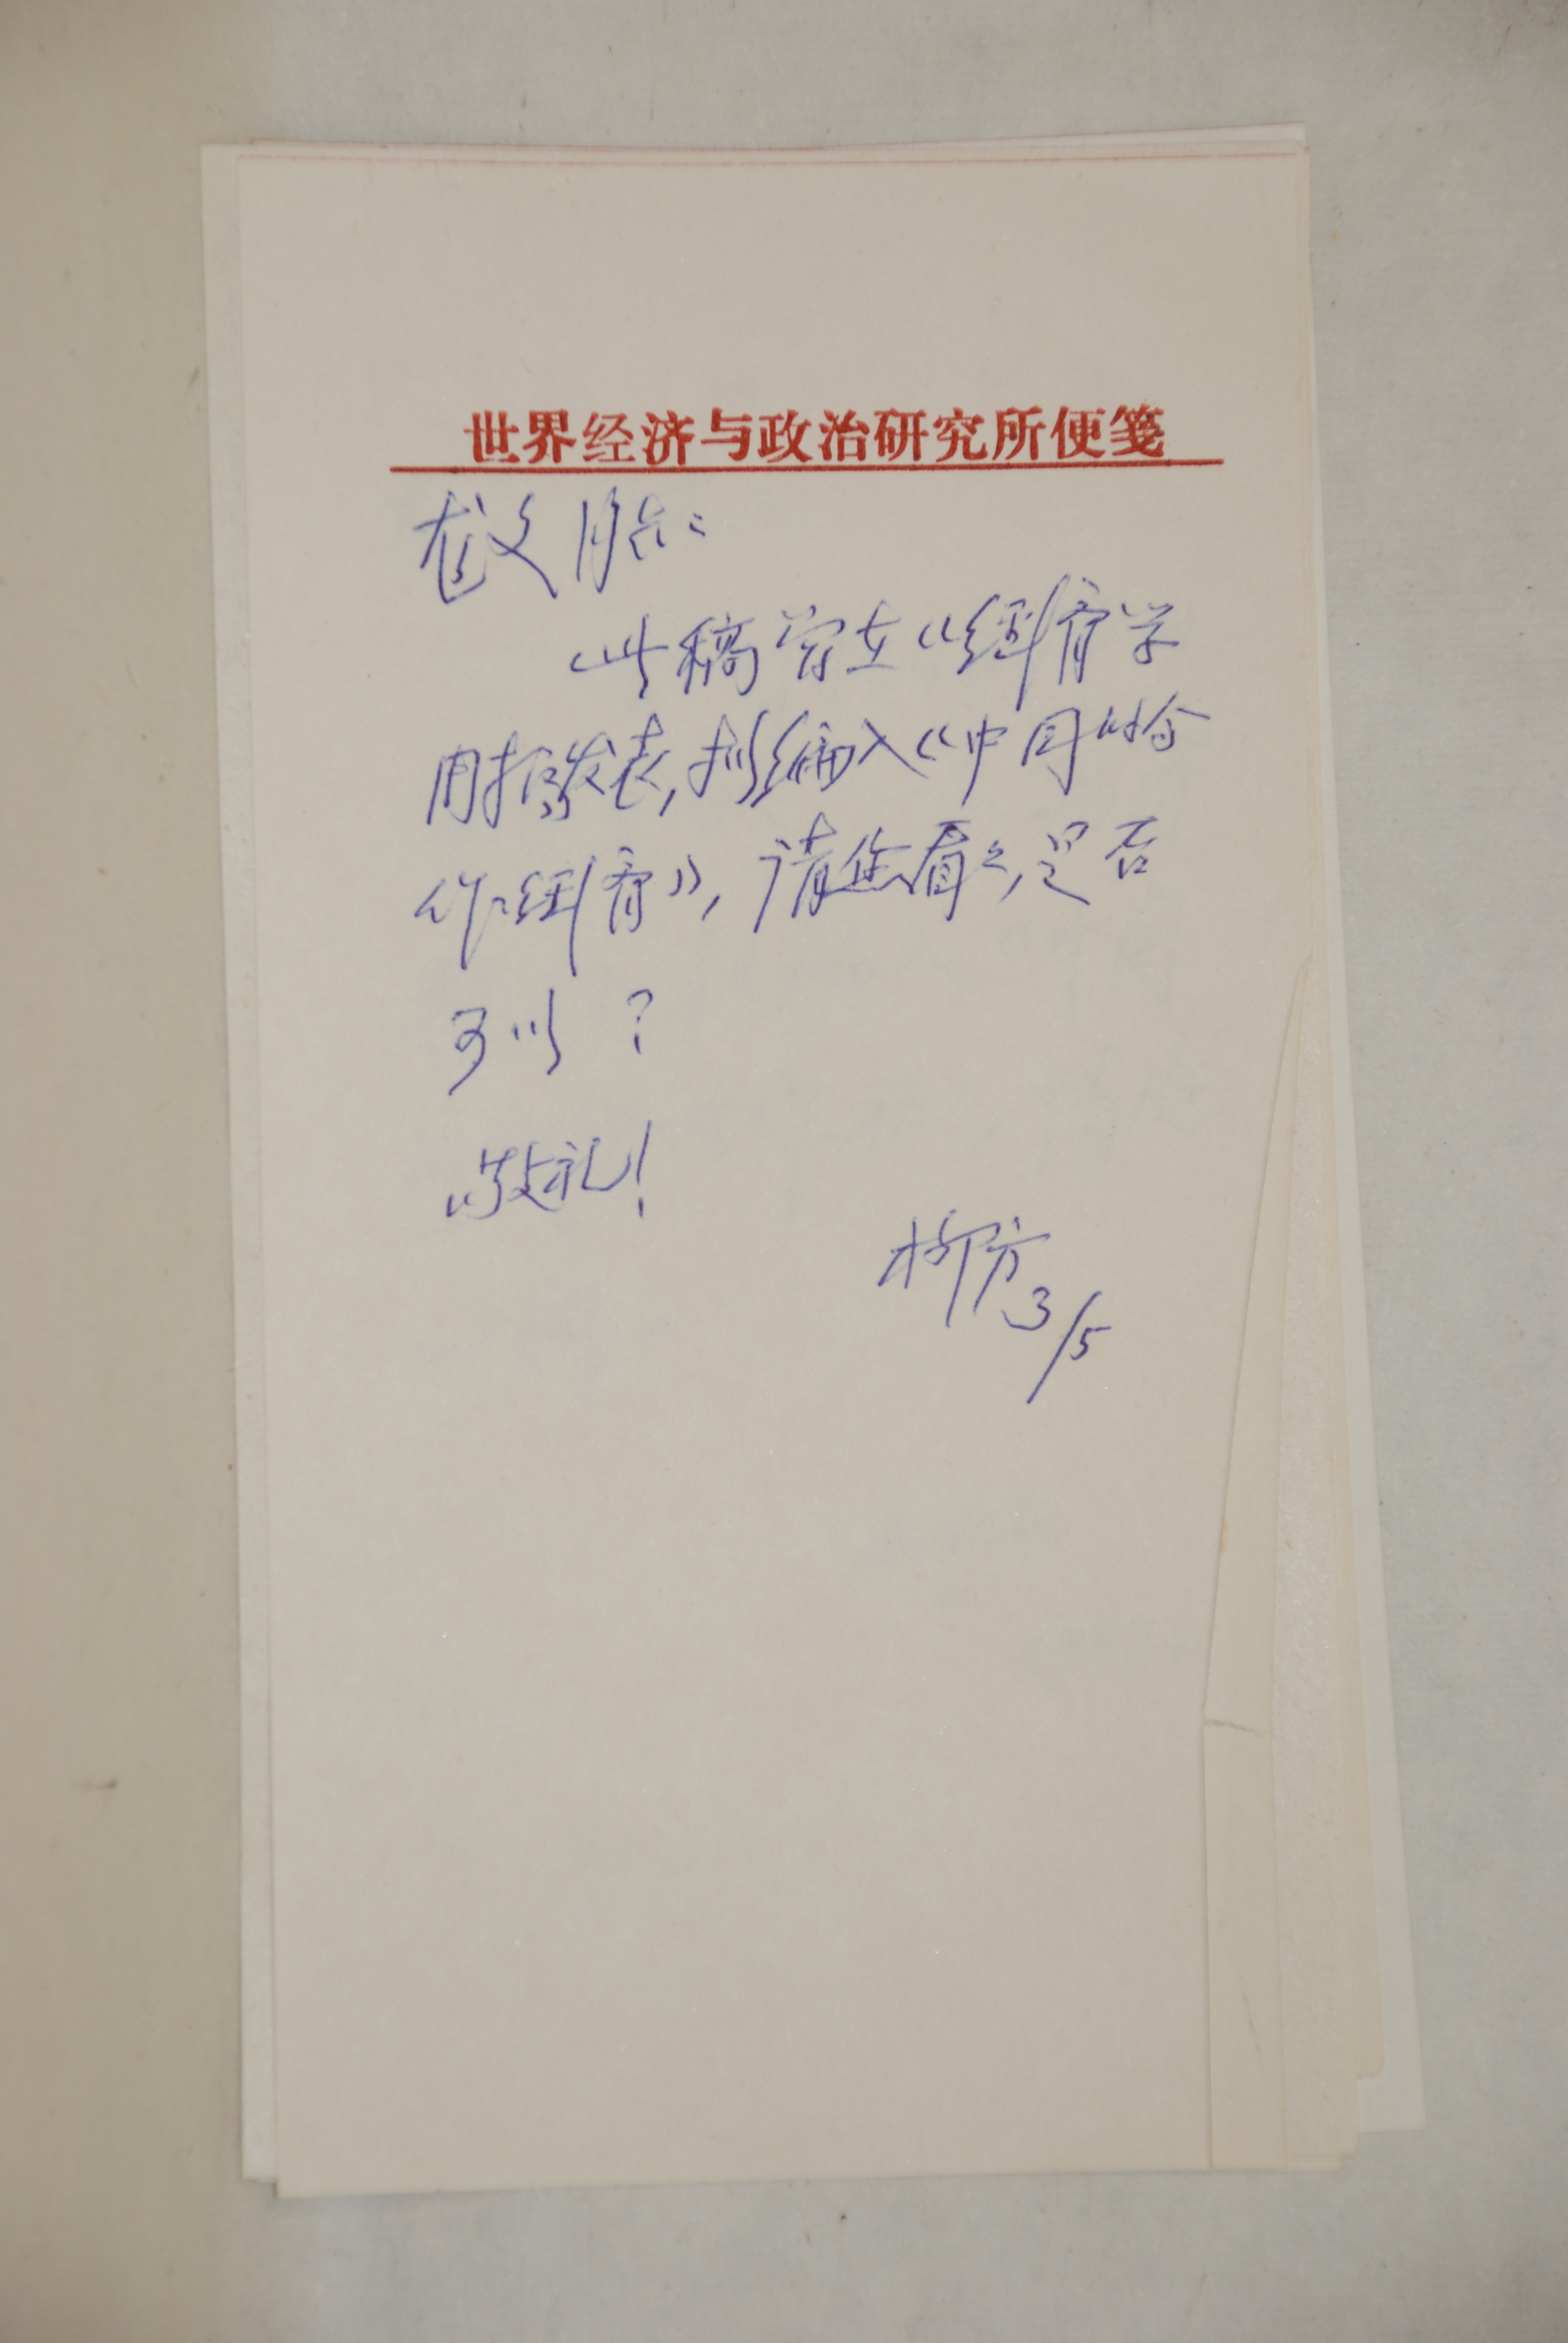 世界经济与政治研究所便笺
龙文同志:
此稿曾在《经济学
周报》发表,拟编入《中国的合
作经济》,请您看看,是否
可以?
敬礼!
3/5